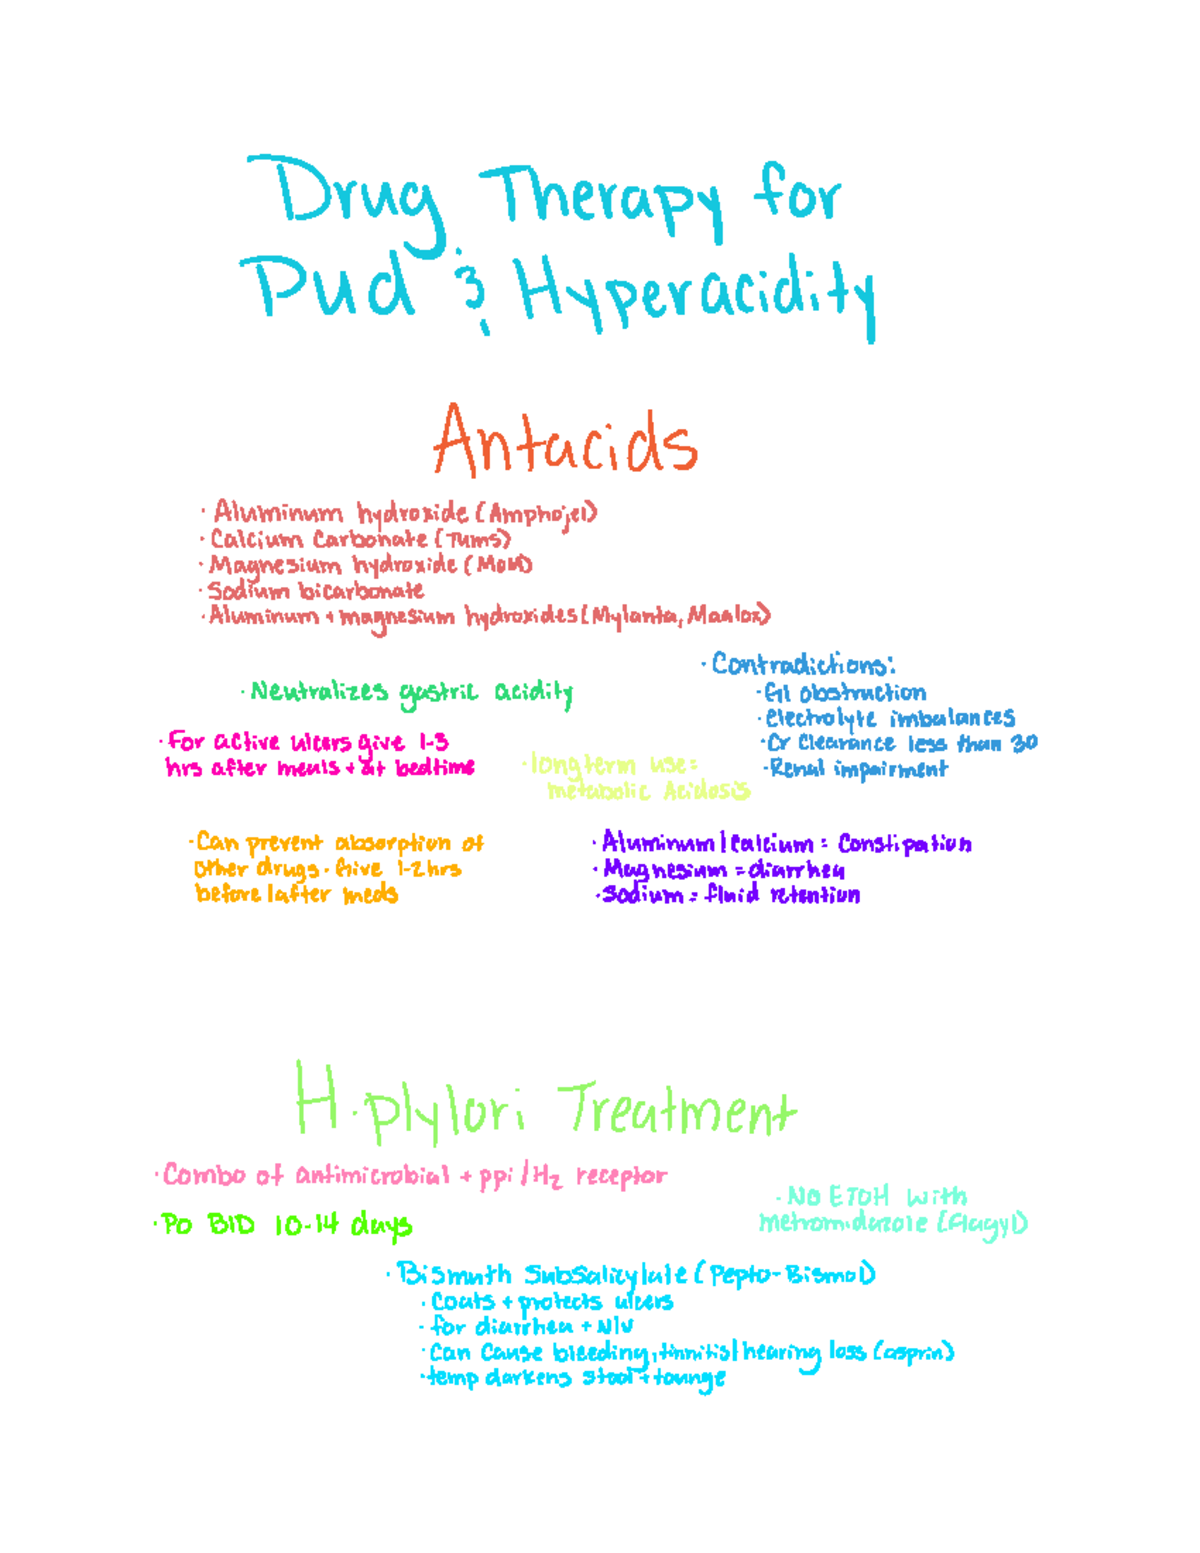 Drug Therapy for
Pud & Hyperacidity
Antacids
· Aluminum hydroxide (Amphojel)
· Calcium Carbonate (Tums)
· Magnesium hydroxide (MoM)
· Sodium bicarbonate
· Aluminum + magnesium hydroxides (Mylanta, Maalox)
· Neutralizes gastric acidity
· Contradictions:
· GI obstruction
· Electrolyte imbalances
· Cr Clearance less than 30
· Renal impairment
· For active ulcers give 1-3
hrs after meals + at bedtime
· long term use:
metabolic Acidosis
· Can prevent absorption of
other drugs. Give 1-2 hrs
before/after meds
· Aluminum/calcium = Constipation
· Magnesium = diarrhea
· Sodium = fluid retention
H. plylori Treatment
· Combo of antimicrobial + ppi/H2 receptor
· Po BID 10-14 days
· No ETOH with
metronidazole (Flagyl)
· Bismuth Subsalicylate (Pepto-Bismol)
· Coats + protects ulcers
· for diarrhea + N/V
· Can cause bleeding, tinnitis/hearing loss (asprin)
· temp darkens stool + tounge